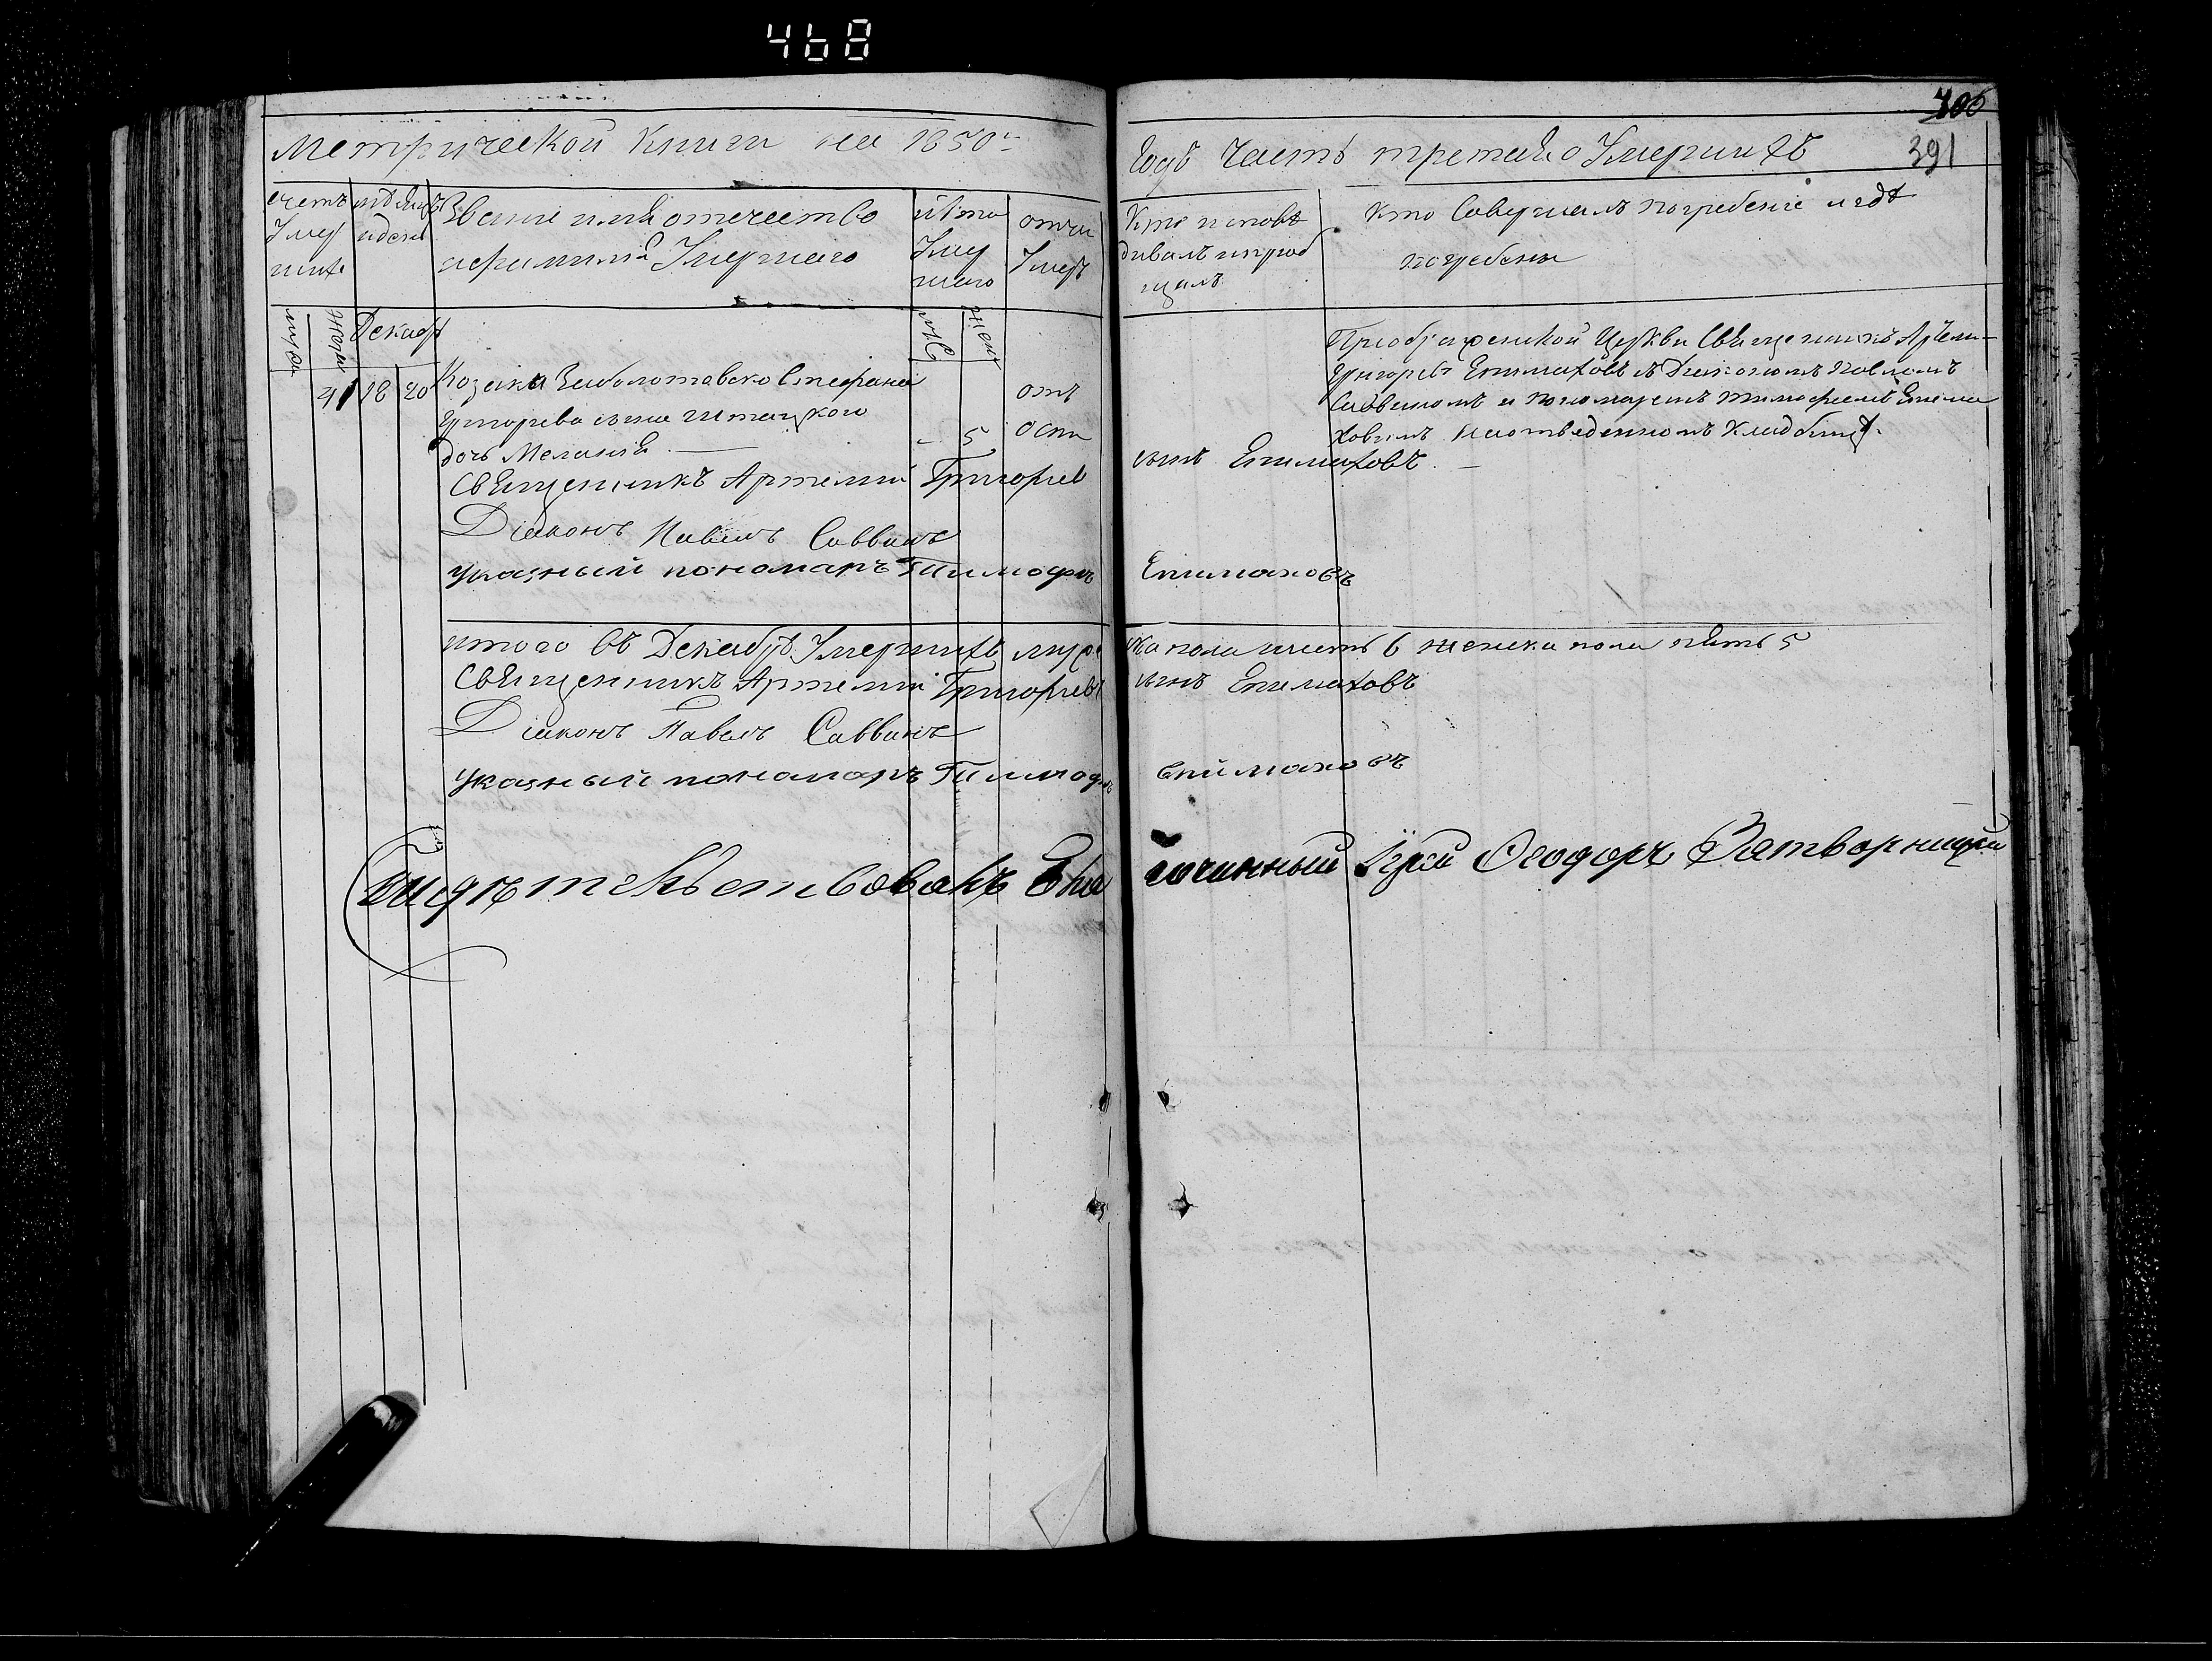 468
Метрической Книги на 1850й Годъ Часть третья о Умершихъ
406
391
счетъ Умершихъ
мѣсяцъ и день
Званіе имя отечество и фамилія Умершаго
лѣта Умершаго
отчего Умеръ
Кто исповѣдывалъ и пріобщалъ
Кто Совершалъ погребеніе и гдѣ погребены
мужск
женск
Декабр
муж
жен
41 18 20
Козака Заболотовско Стефана
Григорева сына
дочь Меланія
- 5
отъ оспы
Преображенской Церкви Священникъ Артеми-
Григорьевъ Епимаховъ съ Діакономъ Павломъ
Саввиномъ и пономаремъ Тимофеемъ Епима
ховымъ на отведенномъ кладбищѣ.
Священникъ Артемий Григорьев сынъ Епимаховъ.
Діаконъ Павелъ Саввинъ
указный пономаръ Тимофѣй Епимаховъ
итого въ Декабрѣ Умершихъ мужеска пола шесть 6 женска пола пять 5
Священникъ Артемий Григорьевъ сынъ Епимаховъ
Діаконъ Павелъ Саввинъ
указный пономаръ Тимофѣй Епимаховъ
Свидѣтельствовалъ Благочинный Іерей Ѳеодоръ Затворницкій